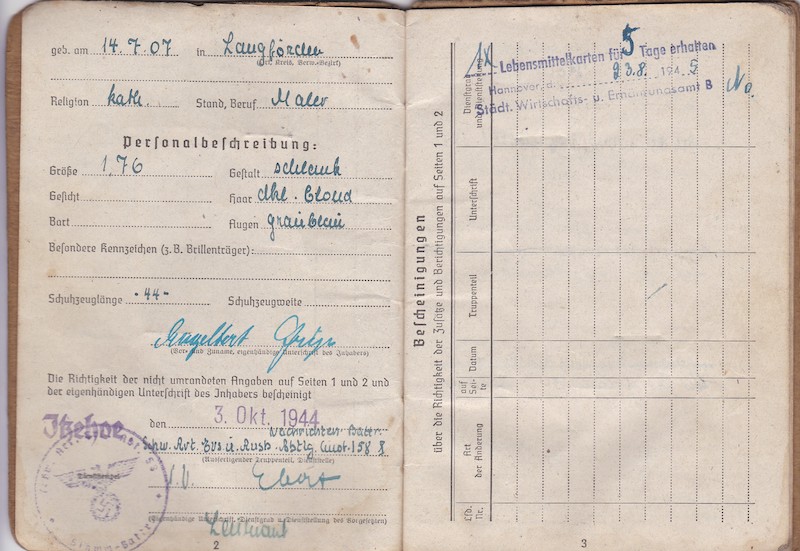 geb. am 14.7.07 in Langförden
(Ort, Kreis, Verw.-Bezirk)
Religion kath. Stand, Beruf Maler
Personalbeschreibung:
Größe 1,76 Gestalt schlank
Gesicht Haar dkl. blond
Bart Augen graublau
Besondere Kennzeichen (z. B. Brillenträger):
Schuhzeuglänge -44- Schuhzeugweite
Engelbert
(Vor- und Zuname, eigenhändige Unterschrift des Inhabers)
Die Richtigkeit der nicht umrandeten Angaben auf Seiten 1 und 2 und
der eigenhändigen Unterschrift des Inhabers bescheinigt
Itzehoe den 3. Okt. 1944
Nachrichten Battr.
Schw. Art. Ers. u. Ausb. Abtlg (mot) 158
(Ausfertigender Truppenteil, Dienststelle)
Ebert
(Eigenhändige Unterschrift, Dienstgrad u. Dienststellung des Vorgesetzten)
Leutnant
2
Bescheinigungen
über die Richtigkeit der Zusätze und Berichtigungen auf Seiten 1 und 2
Lfd. Nr.
Art der Änderung
auf Seite
Datum
Truppenteil
Unterschrift
Dienstgrad und Dienststellung
Lebensmittelkarten für 5 Tage erhalten
Hannover, d. 23.8. 1945
Städt. Wirtschafts- u. Ernährungsamt B
3